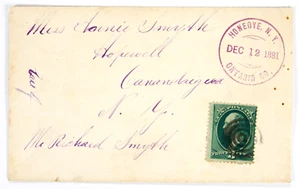 Miss Nannie Smythe
Hopewell
Canandaigua
N. Y.
Mr Richard Smyth
HONEOYE, N.Y.
DEC 12 1881
ONTARIO CO.